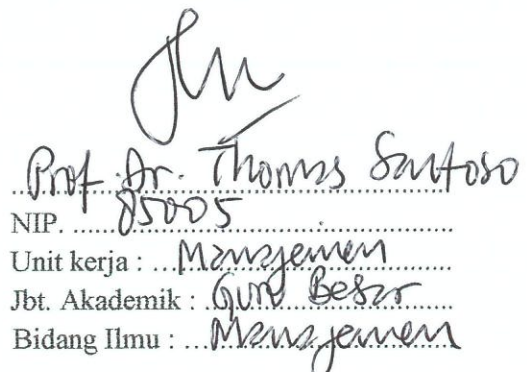 Prof. Dr. Thomas Santoso
NIP. 85005
Unit kerja : Manajemen
Jbt. Akademik : Guru Besar
Bidang Ilmu : Manajemen